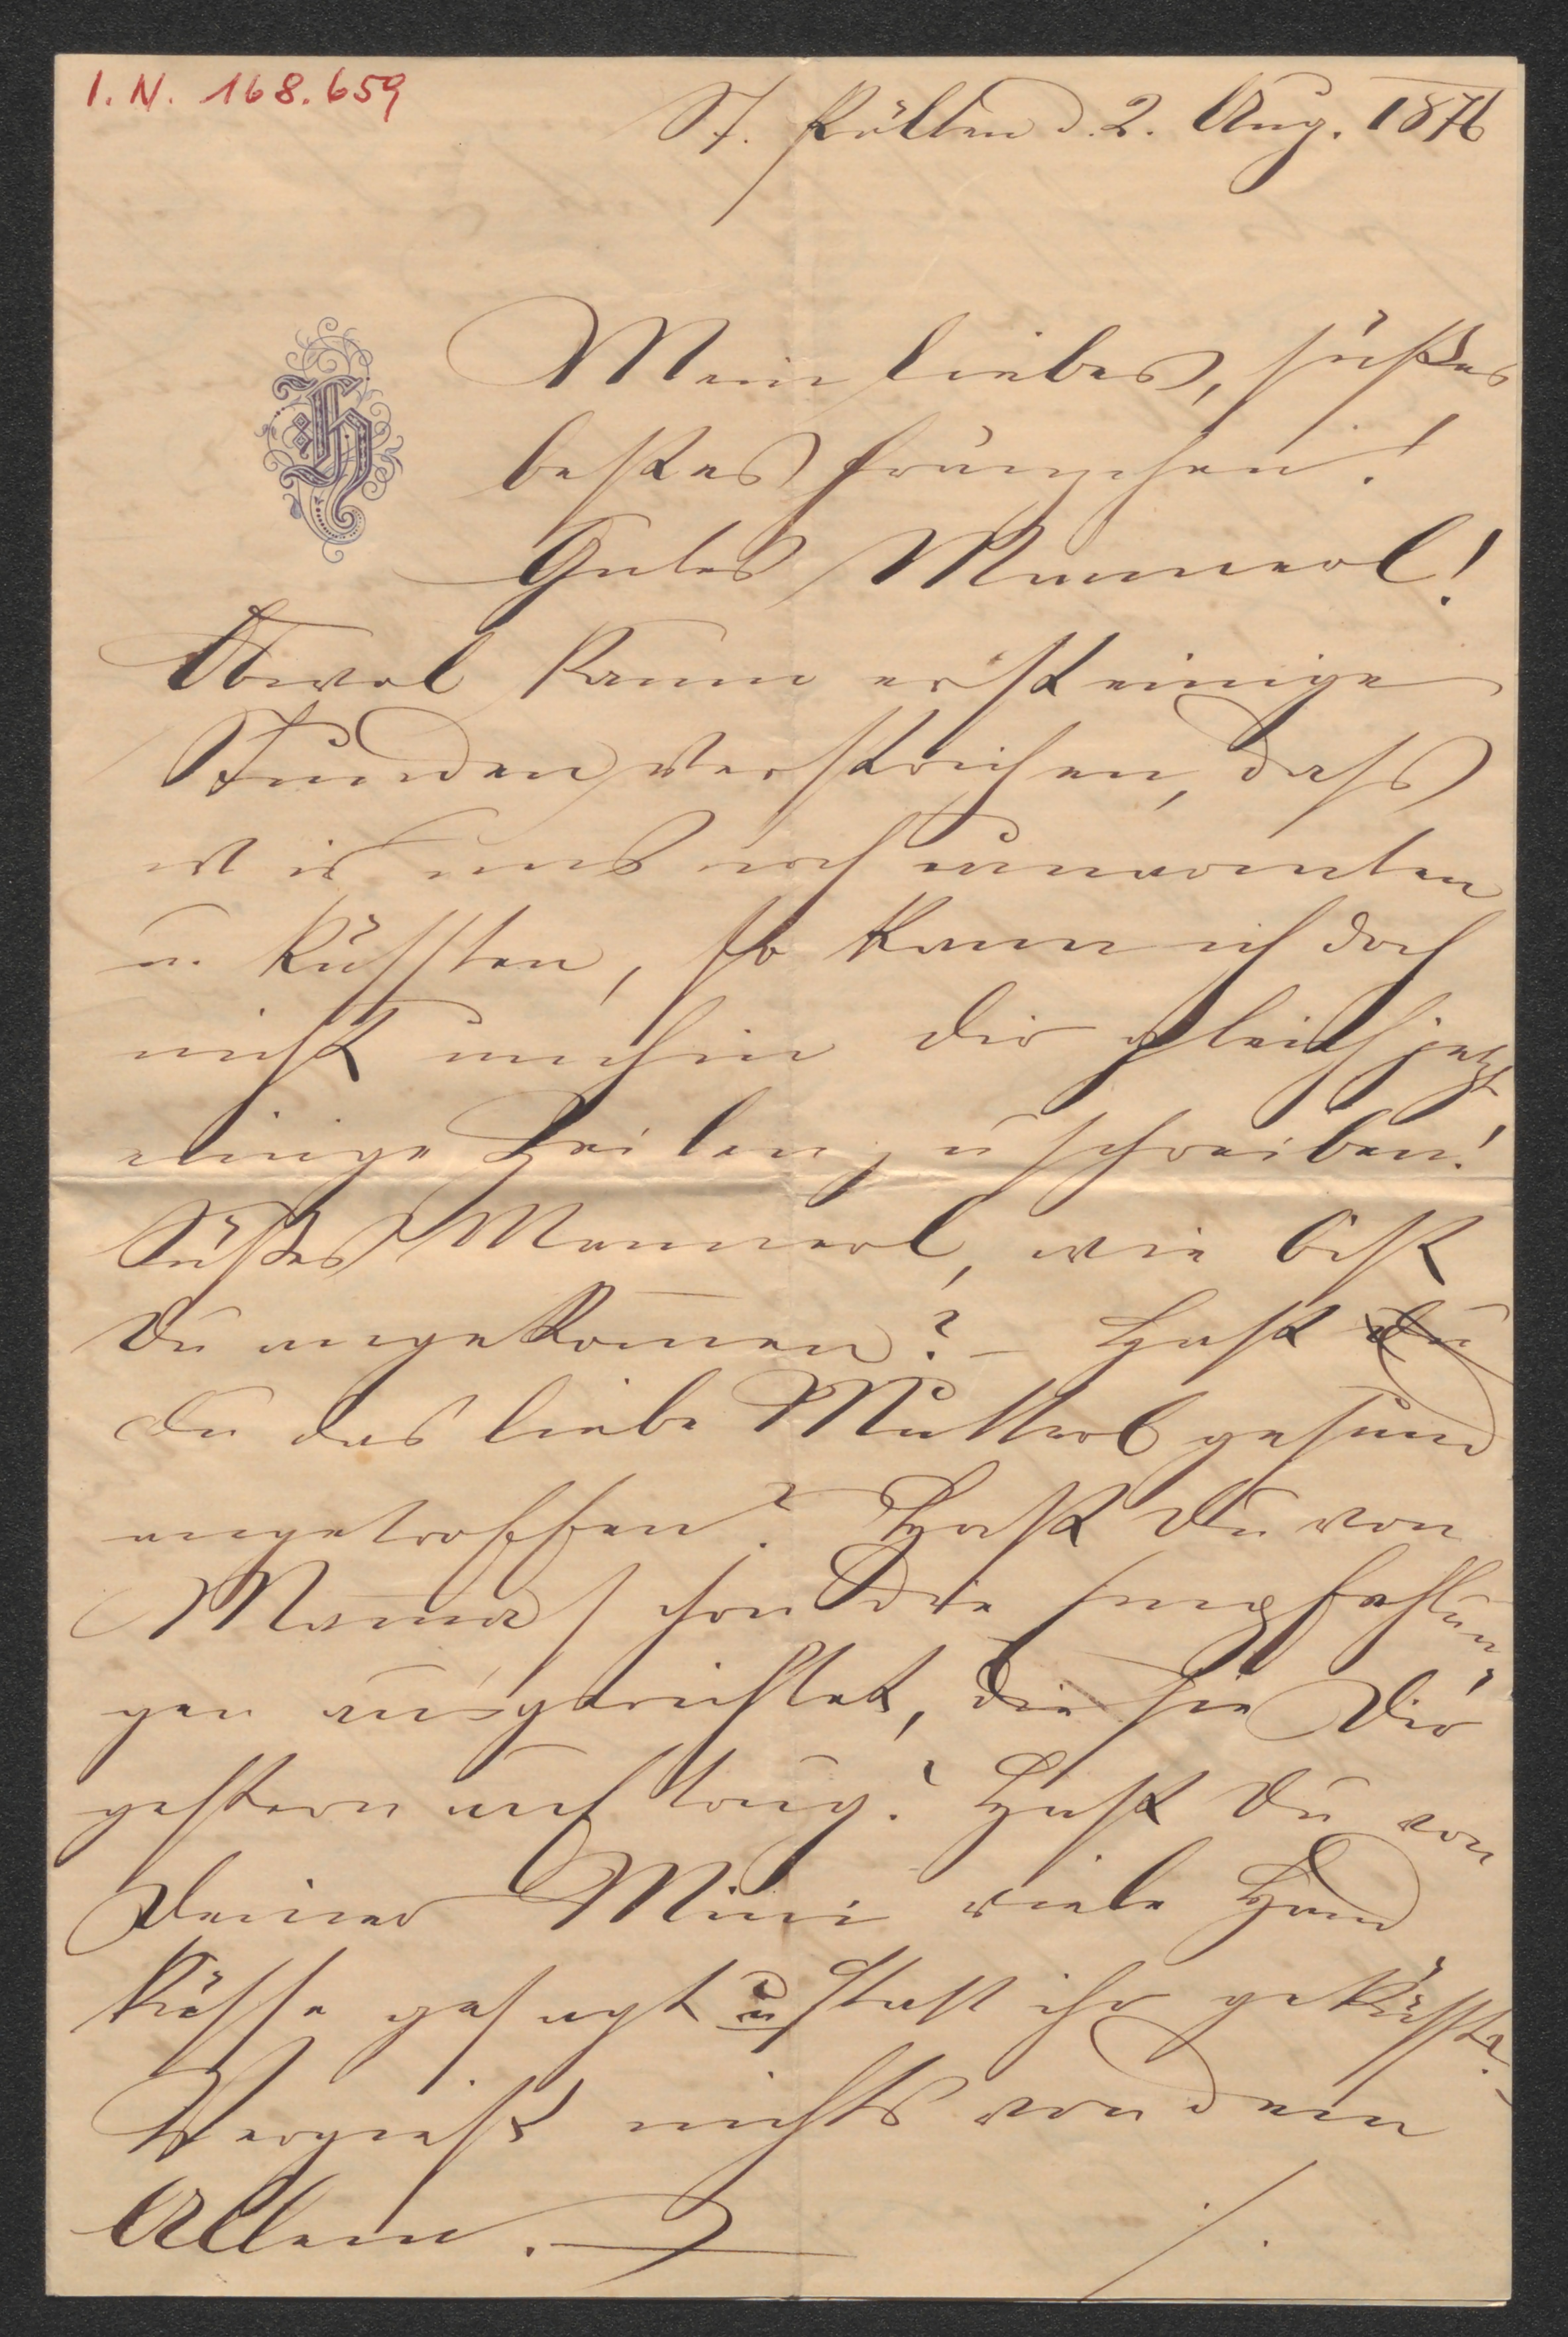 I. N. 168.659
St. Pölten d. 2. Aug. 1876
H
Mein liebes, süßes
bestes Frauchen!
Gutes Mannerl!
Obwol kaum erst einige
Stunden verstrichen, daß
wir uns noch umarmten
u. küßten, so kann ich doch
nicht umhin Dir gleich jetzt
einige Zeilen zu schreiben!
Süßes Mannerl, wie bist
Du angekom̅en? – Hast Du
Du das liebe Mutterl gesund
angetroffen? Hast Du von
Mama schon die Empfehlun
gen ausgerichtet, die sie Dir
gestern auftrug? Hast Du von
Deiner Mimi viele Hand
küsse gesagt u statt ihr geküßt?
Vergeßt nichts von dem
Allem.
./.